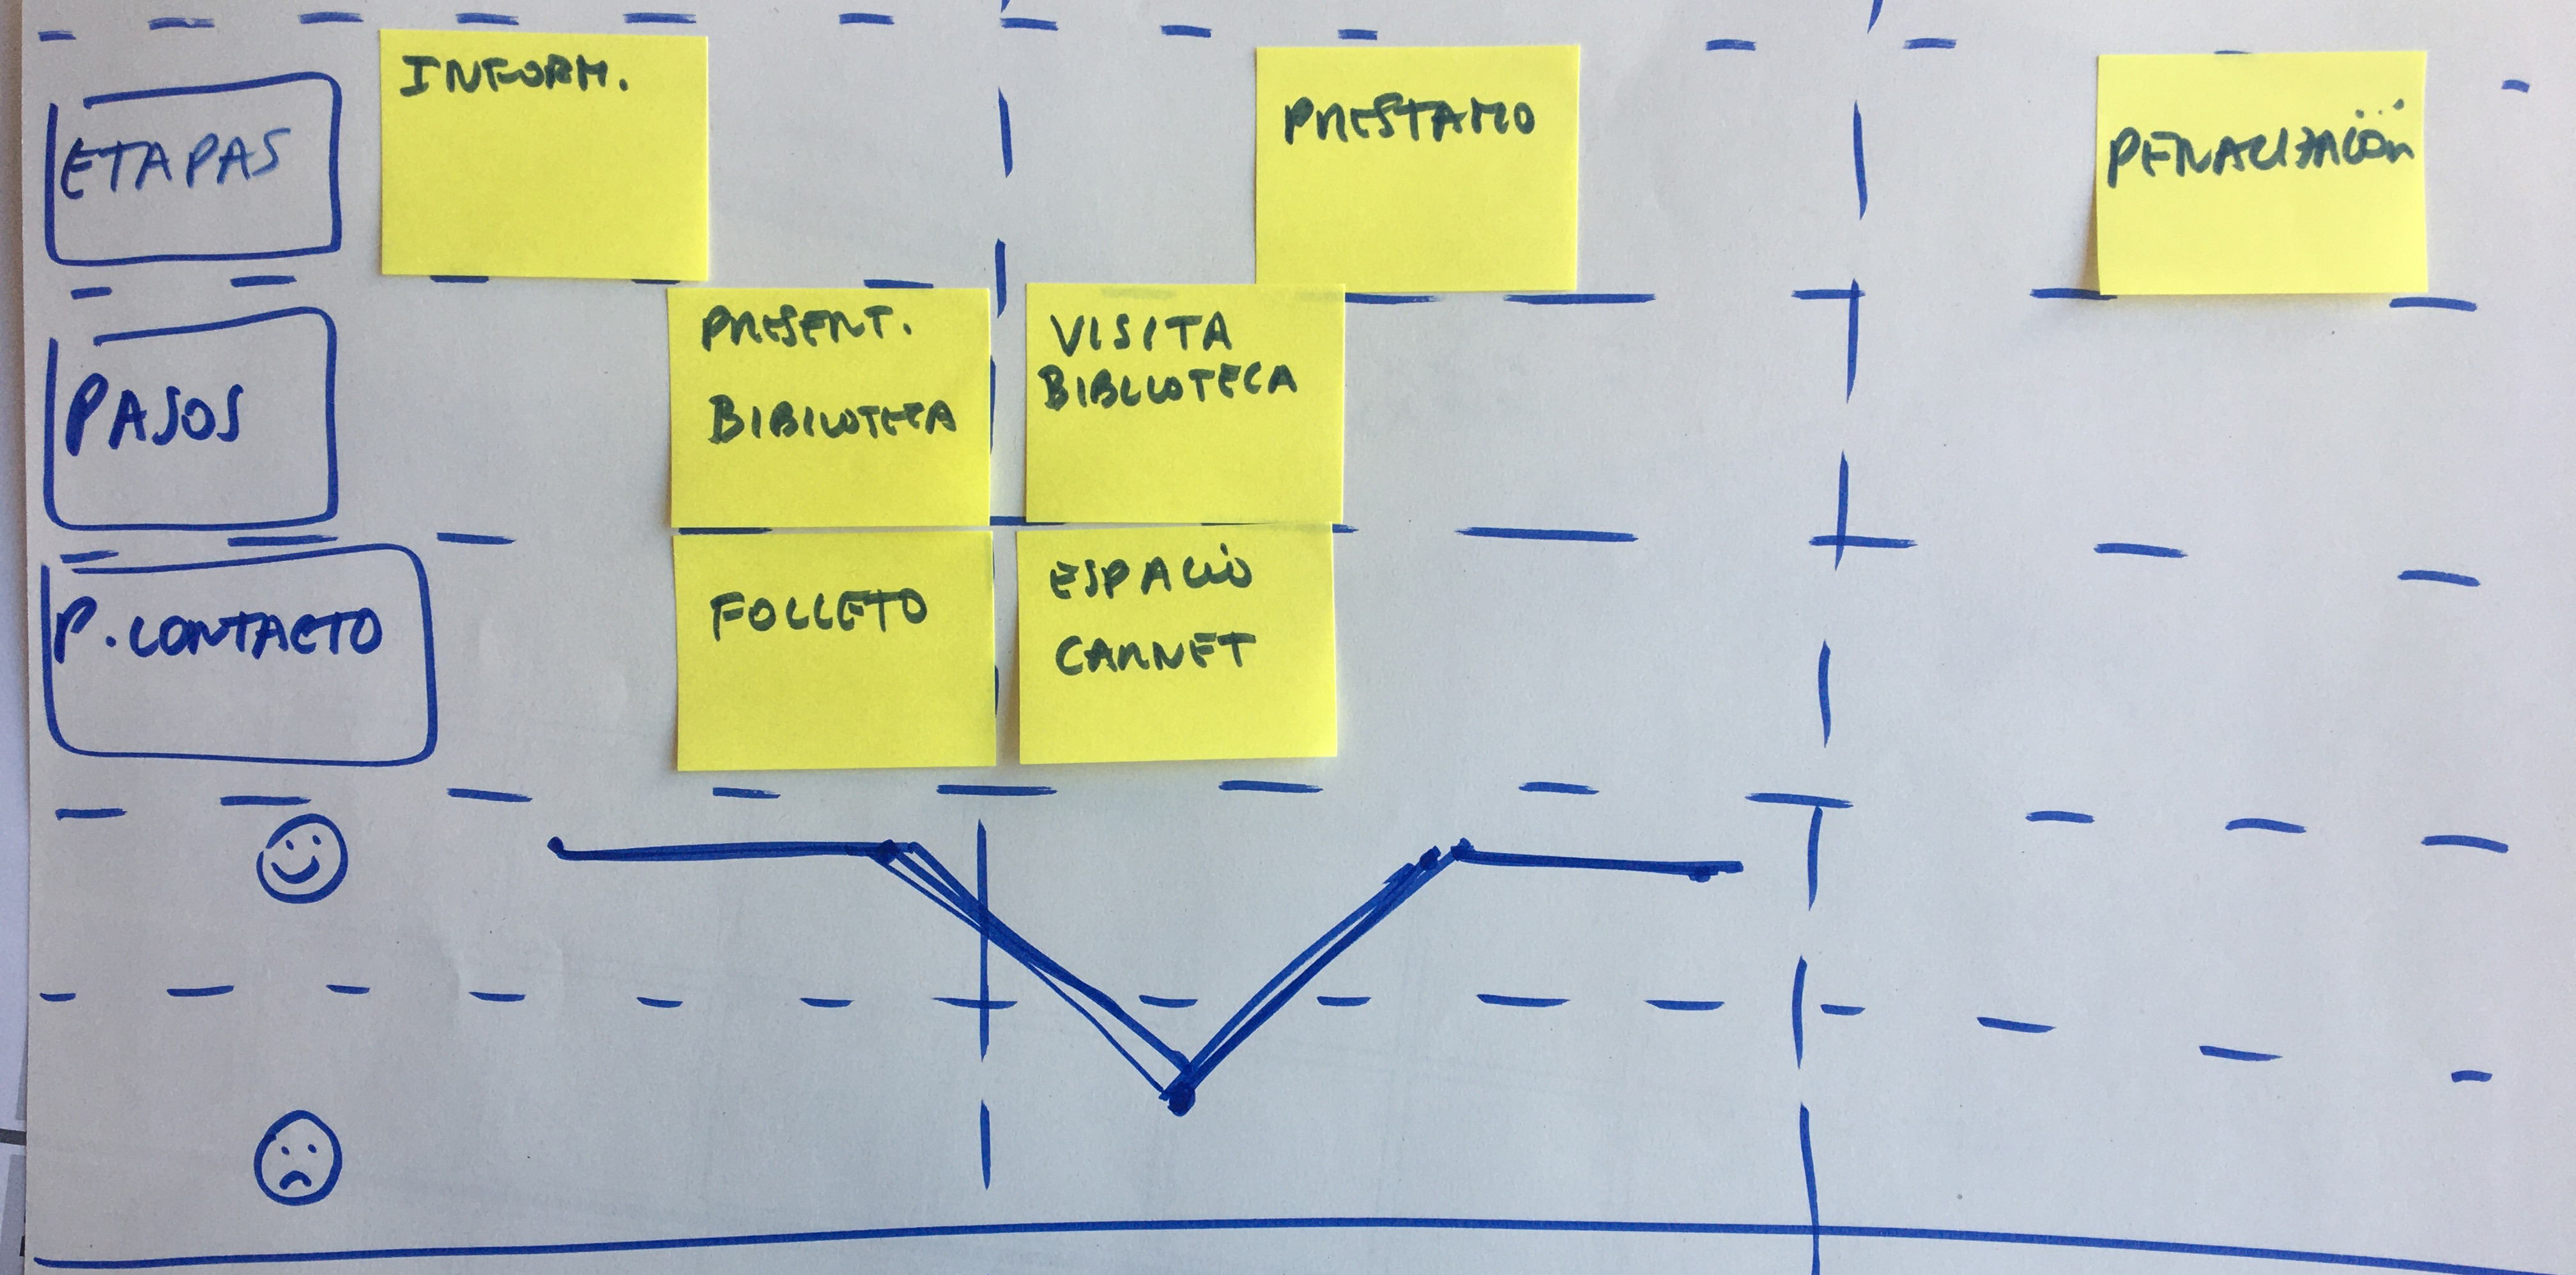 ETAPAS
INFORM.
PRESTAMO
PENALIZACIÓN
PASOS
PRESENT.
BIBILOTECA
VISITA
BIBLIOTECA
P. CONTACTO
FOLLETO
ESPACIO
CARNET